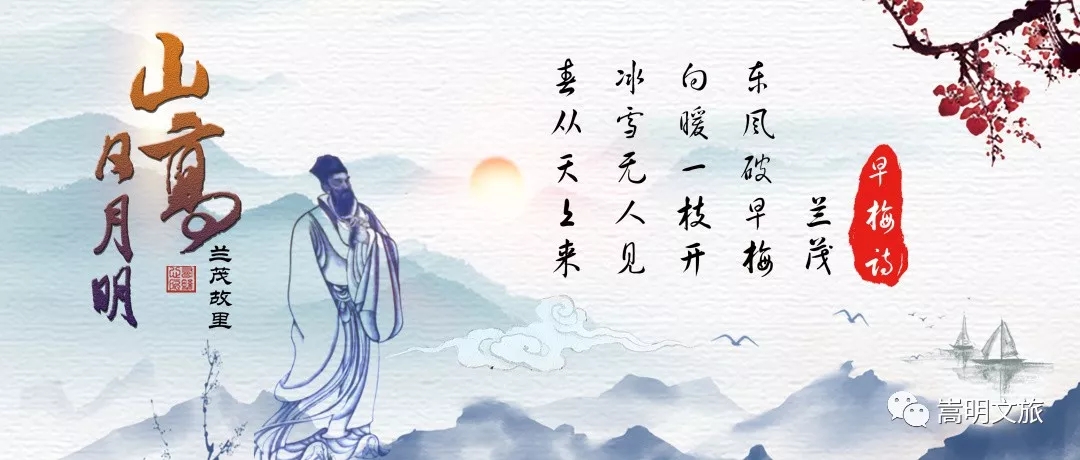 山高
日月明
兰茂故里
早梅诗
兰茂
东风破早梅
向暖一枝开
冰雪无人见
春从天上来
嵩明文旅